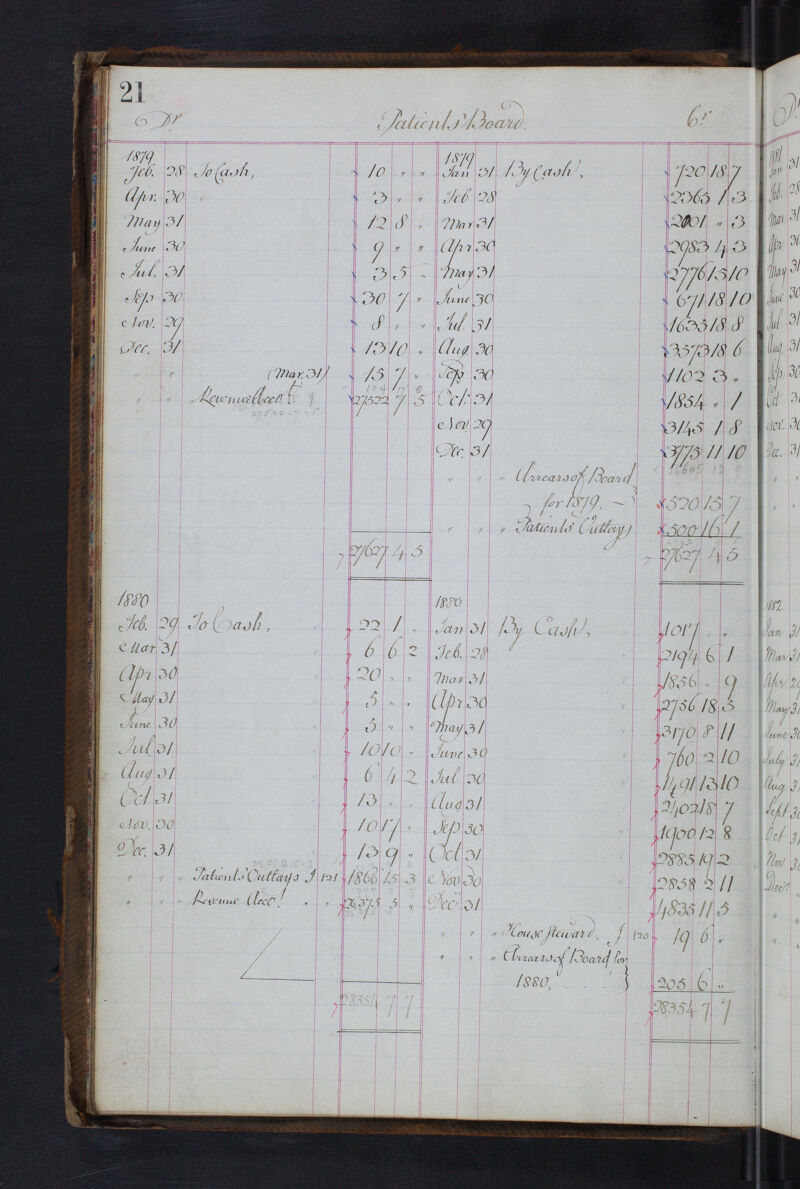 21
Dr Patients' Board. Cr
1879 1879
Feb. 28 To Cash, 10 " " Jan 31 By Cash, 720 18 7
Apr. 30 " 3 " " Feb 28 2365 1 3
May 31 12 8 " Mar 31 2001 " 3
June 30 9 " " Apr 30 2983 4 3
Jul. 31 3 5 " May 31 2776 13 10
Sep 30 30 7 " June 30 671 18 10
Nov. 29 8 " " Jul 31 1633 18 8
Dec. 31 13 10 " Aug. 30 3573 18 6
" " (Mar. 31) 15 7 " Sep 30 1102 3 "
104 17 0
" " Revenue Acct. 27522 7 5 Oct. 31 1854 " 1
27522 . 7 . 5
Nov 29 3145 1 8
Dec. 31 3775 11 10
26605 12 9
" " " Arrears of Board
for 1879. } 520 15 7
" " " Patients' Outlays 500 16 1
27627 4 5 27627 4 5
1880 1880
Feb. 29 To Cash, 22 1 " Jan 31 By Cash, 1017 " "
Mar 31 6 6 2 Feb. 28 2194 6 1
Apr 30 20 " " Mar. 31 1856 " 9
May 31 5 " " Apr 30 2756 18 5
June 30 5 " " May 31 3170 8 11
Jul 31 10 10 " June 30 760 2 10
Aug 31 6 4 2 Jul 30 1491 13 10
Oct. 31 13 " " Aug 31 2402 18 7
Nov. 30 10 17 " Sep 30 1900 12 8
Dec. 31 13 9 " Oct 31 2885 19 2
" " " Patients' Outlays J 121 1866 15 3 Nov 30 2858 2 11
" " " Revenue Acct. " " 26375 5 " Dec. 31 4835 11 5
" " " House Steward, J 120 19 6 "
" " " Arrears of Board for
1880, } 205 6 "
28354 7 7 28354 7 7
1881
Jan 31
Feb. 28
Mar 31
Apr. 30
May 31
June 30
Jul 31
Aug 31
Sep 30
Oct 31
Nov. 30
Dec. 31
1882
Jan 31
Mar 31
Apr
May 31
June 30
July 31
Aug 31
Sept 30
Oct 31
Nov 30
Dec